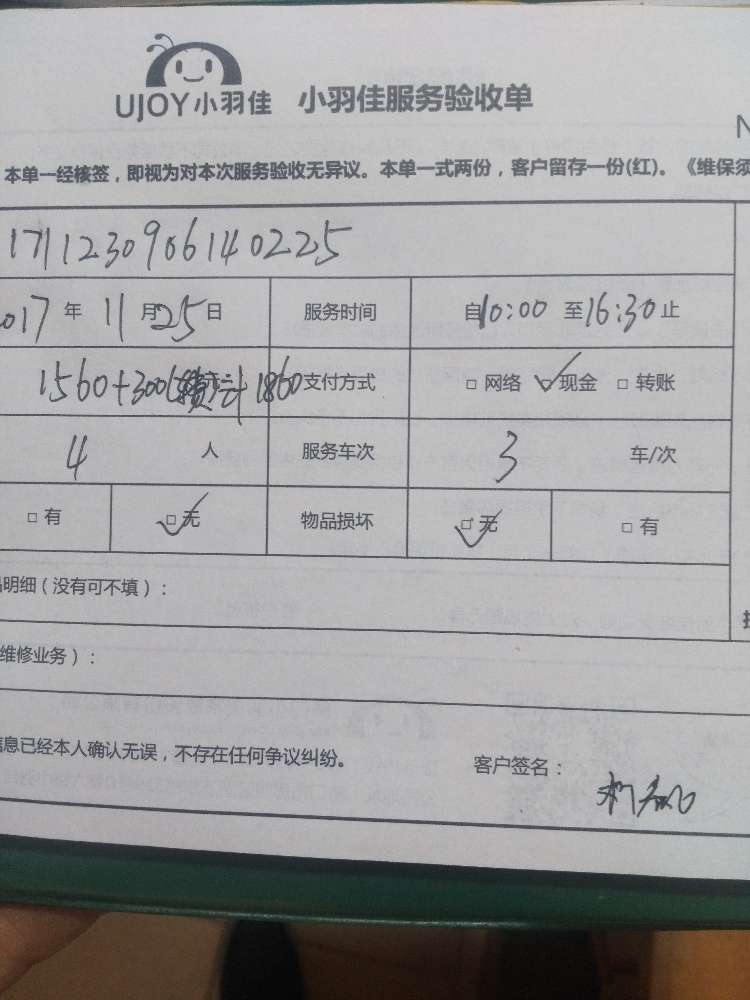 UJOY小羽佳 小羽佳服务验收单
N
本单一经核签，即视为对本次服务验收无异议。本单一式两份，客户留存一份(红)。《维保须
171123090614 0225
2017 年 11 月 25 日 服务时间 自10:00 至16:30止
1560+300 计 1860 支付方式 □ 网络 ☑ 现金 □ 转账
4 人 服务车次 3 车/次
□ 有 ☑ 无 物品损坏 ☑ 无 □ 有
品明细（没有可不填）：
维修业务）：
信息已经本人确认无误，不存在任何争议纠纷。
客户签名：